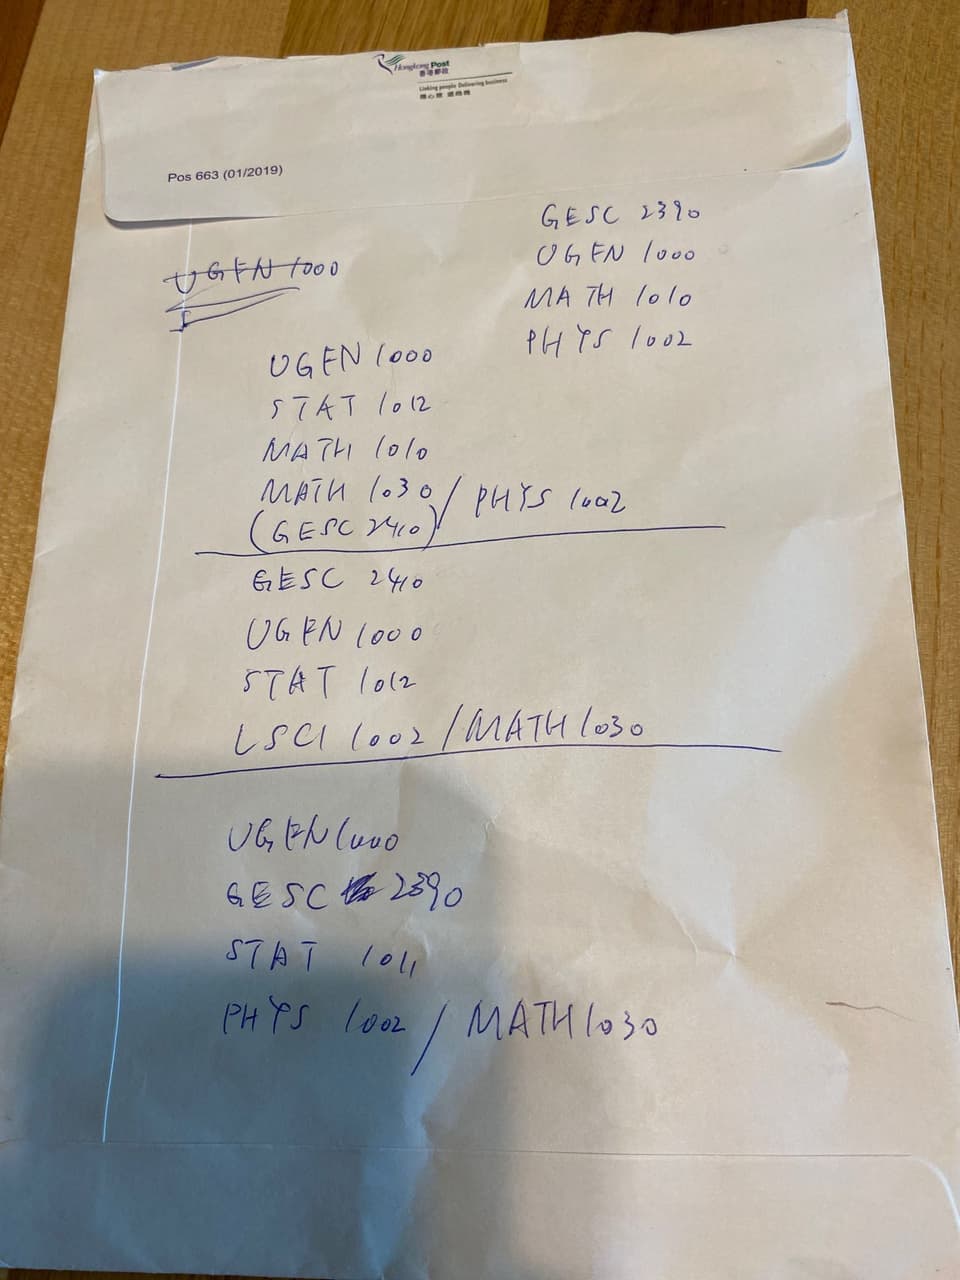 Hongkong Post
香港郵政
Linking people Delivering business
傳心意 遞商機
Pos 663 (01/2019)
GESC 2390
UGEN 1000
MATH 1010
PHYS 1002
UGEN 1000
UGEN 1000
STAT 1012
MATH 1010
MATH 1030 / PHYS 1002
(GESC 2410)
GESC 2410
UGEN 1000
STAT 1012
LSCI 1002 / MATH 1030
UGEN 1000
GESC 2390
STAT 1011
PHYS 1002 / MATH 1030